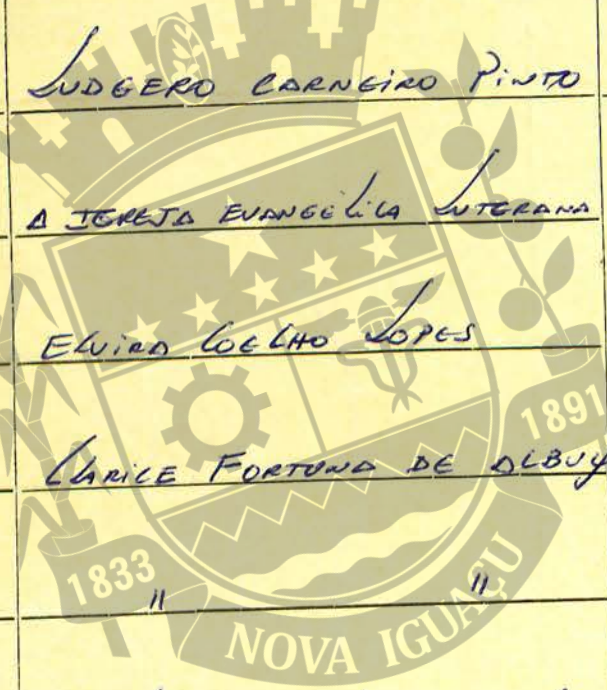 LUDGERO CARNEIRO PINTO
A IGREJA EVANGÉLICA LUTERANA
ELVIRA COELHO LOPES
CLARICE FORTUNA DE ALBUQ
" "
1833
1891
NOVA IGUAÇU